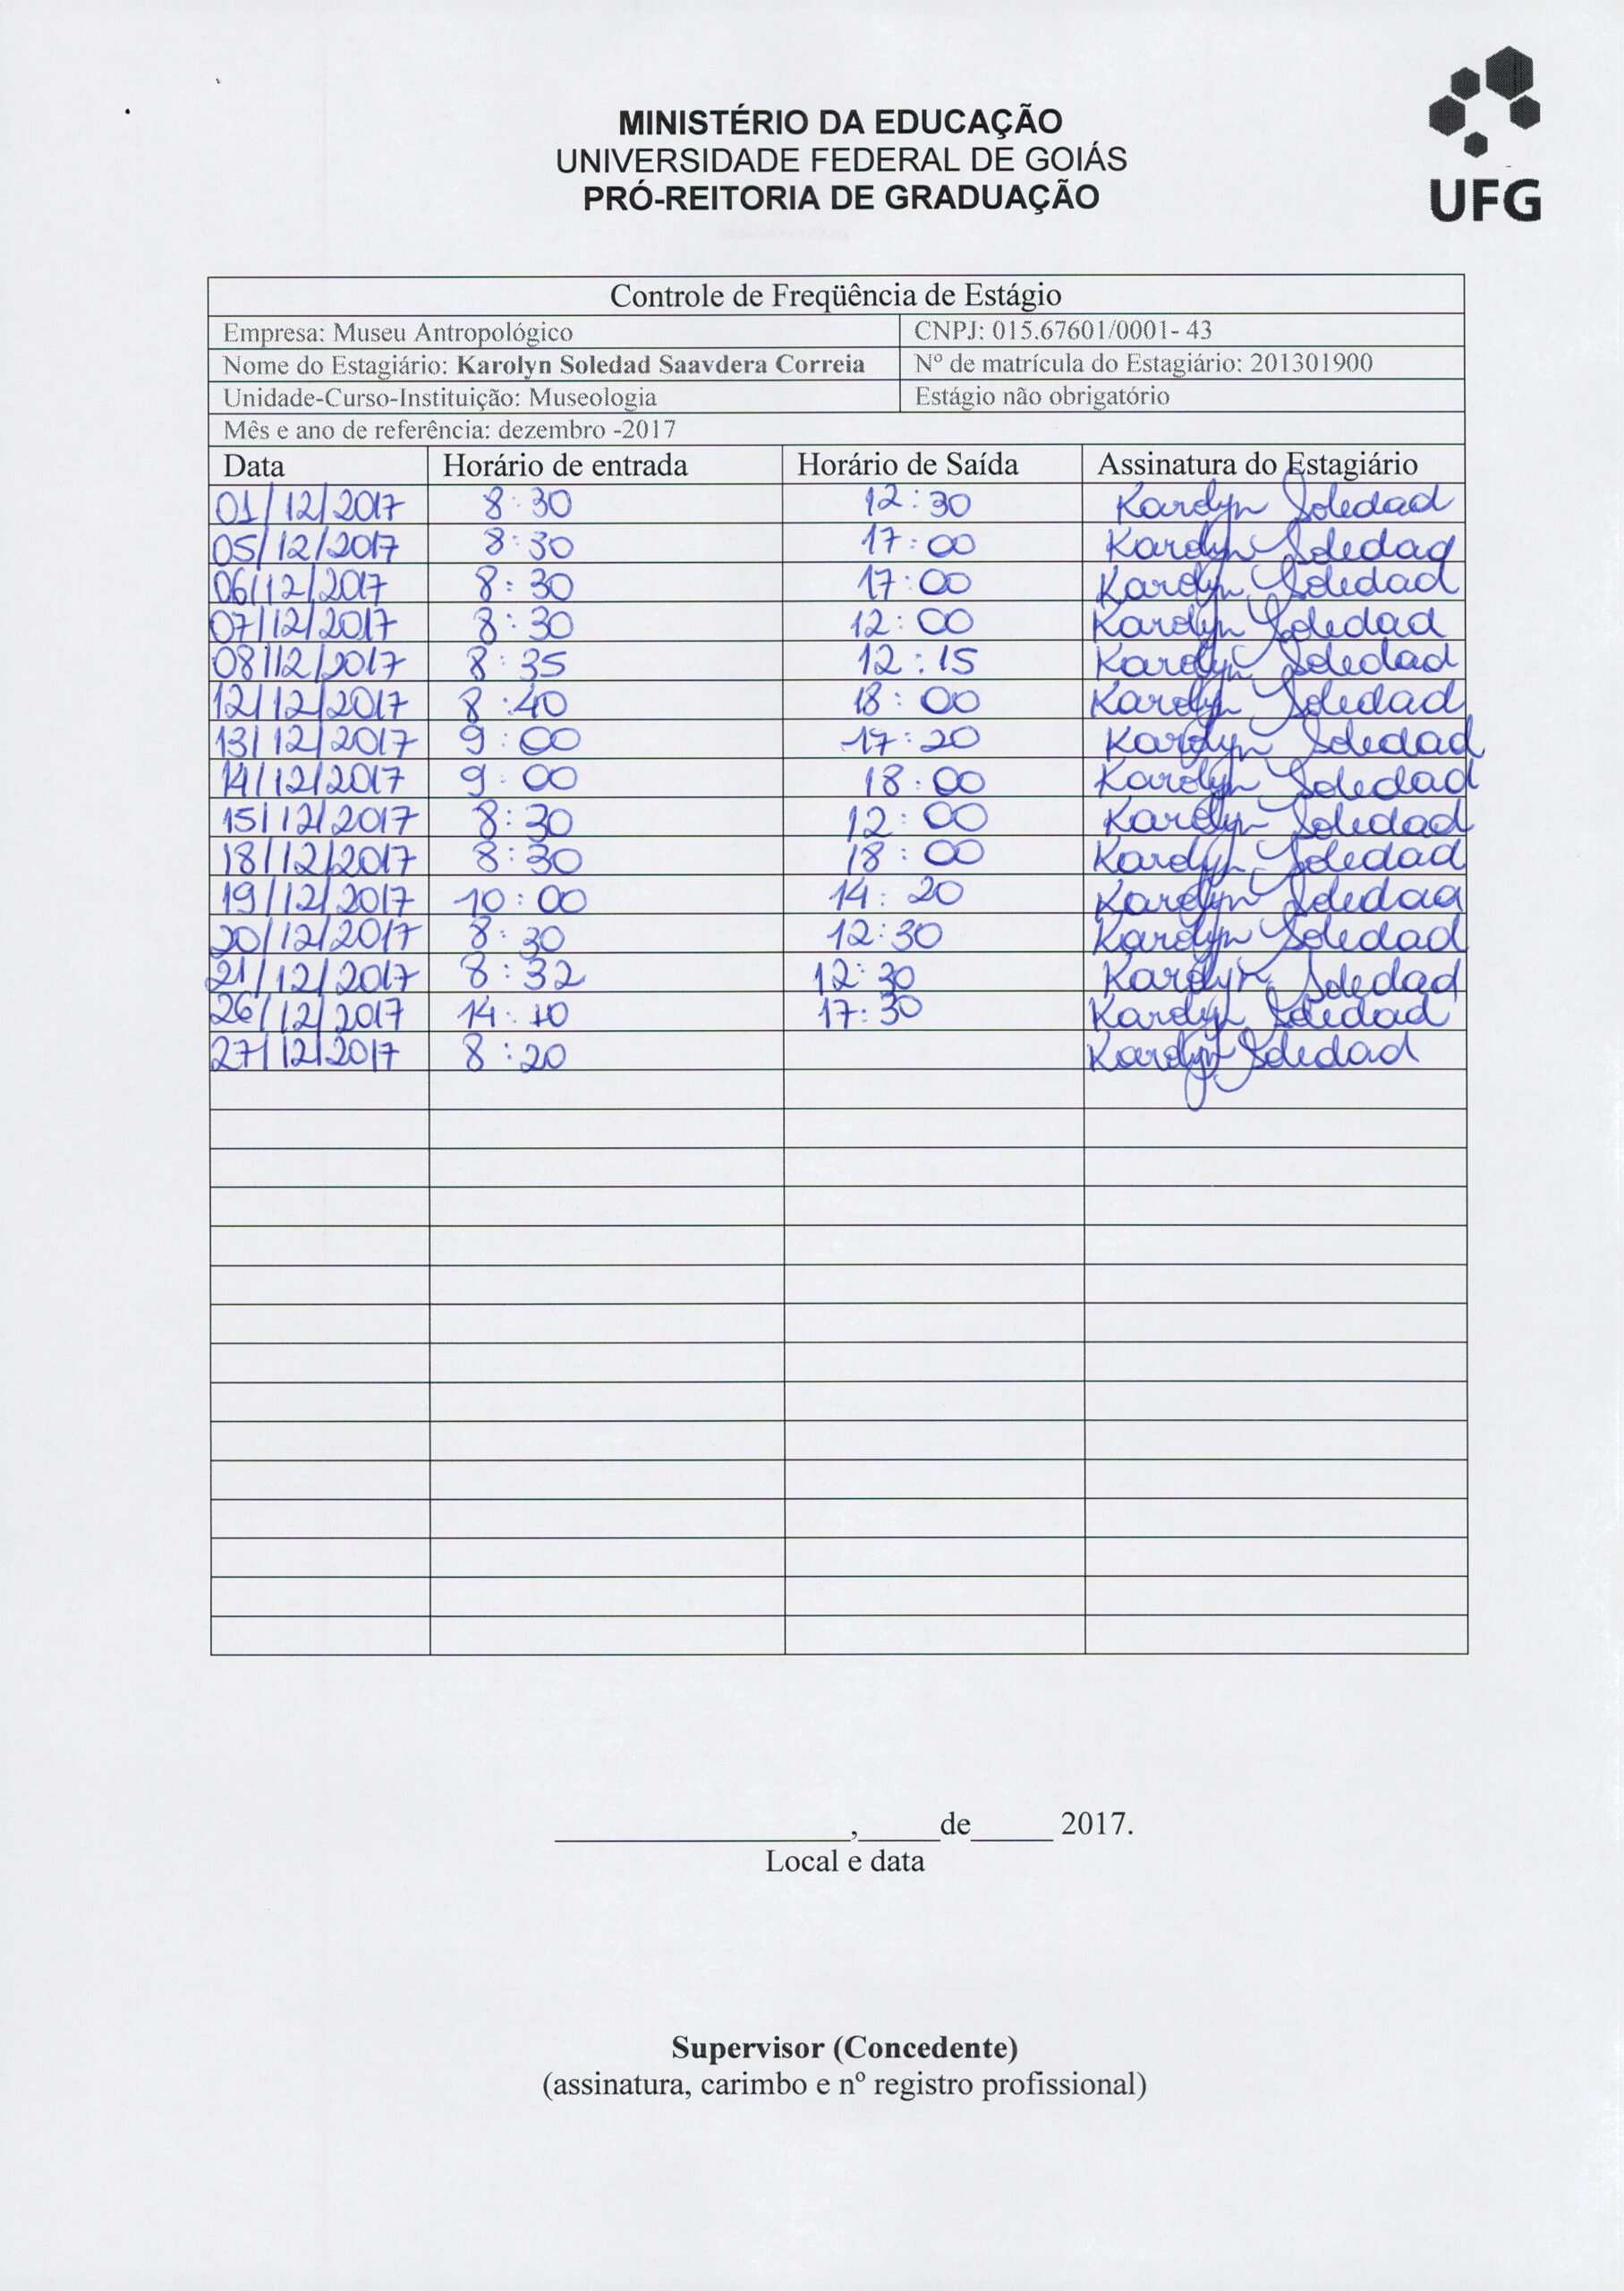 MINISTÉRIO DA EDUCAÇÃO
UNIVERSIDADE FEDERAL DE GOIÁS
PRÓ-REITORIA DE GRADUAÇÃO
UFG
Controle de Freqüência de Estágio
Empresa: Museu Antropológico CNPJ: 015.67601/0001- 43
Nome do Estagiário: Karolyn Soledad Saavdera Correia Nº de matrícula do Estagiário: 201301900
Unidade-Curso-Instituição: Museologia Estágio não obrigatório
Mês e ano de referência: dezembro -2017
Data Horário de entrada Horário de Saída Assinatura do Estagiário
01/12/2017 8:30 12:30 Karolyn Soledad
05/12/2017 8:30 17:00 Karolyn Soledad
06/12/2017 8:30 17:00 Karolyn Soledad
07/12/2017 8:30 12:00 Karolyn Soledad
08/12/2017 8:35 12:15 Karolyn Soledad
12/12/2017 8:40 18:00 Karolyn Soledad
13/12/2017 9:00 17:20 Karolyn Soledad
14/12/2017 9:00 18:00 Karolyn Soledad
15/12/2017 8:30 12:00 Karolyn Soledad
18/12/2017 8:30 18:00 Karolyn Soledad
19/12/2017 10:00 14:20 Karolyn Soledad
20/12/2017 8:30 12:30 Karolyn Soledad
21/12/2017 8:32 12:30 Karolyn Soledad
26/12/2017 14:10 17:30 Karolyn Soledad
27/12/2017 8:20 Karolyn Soledad
__________________,_____de_____ 2017.
Local e data
Supervisor (Concedente)
(assinatura, carimbo e nº registro profissional)